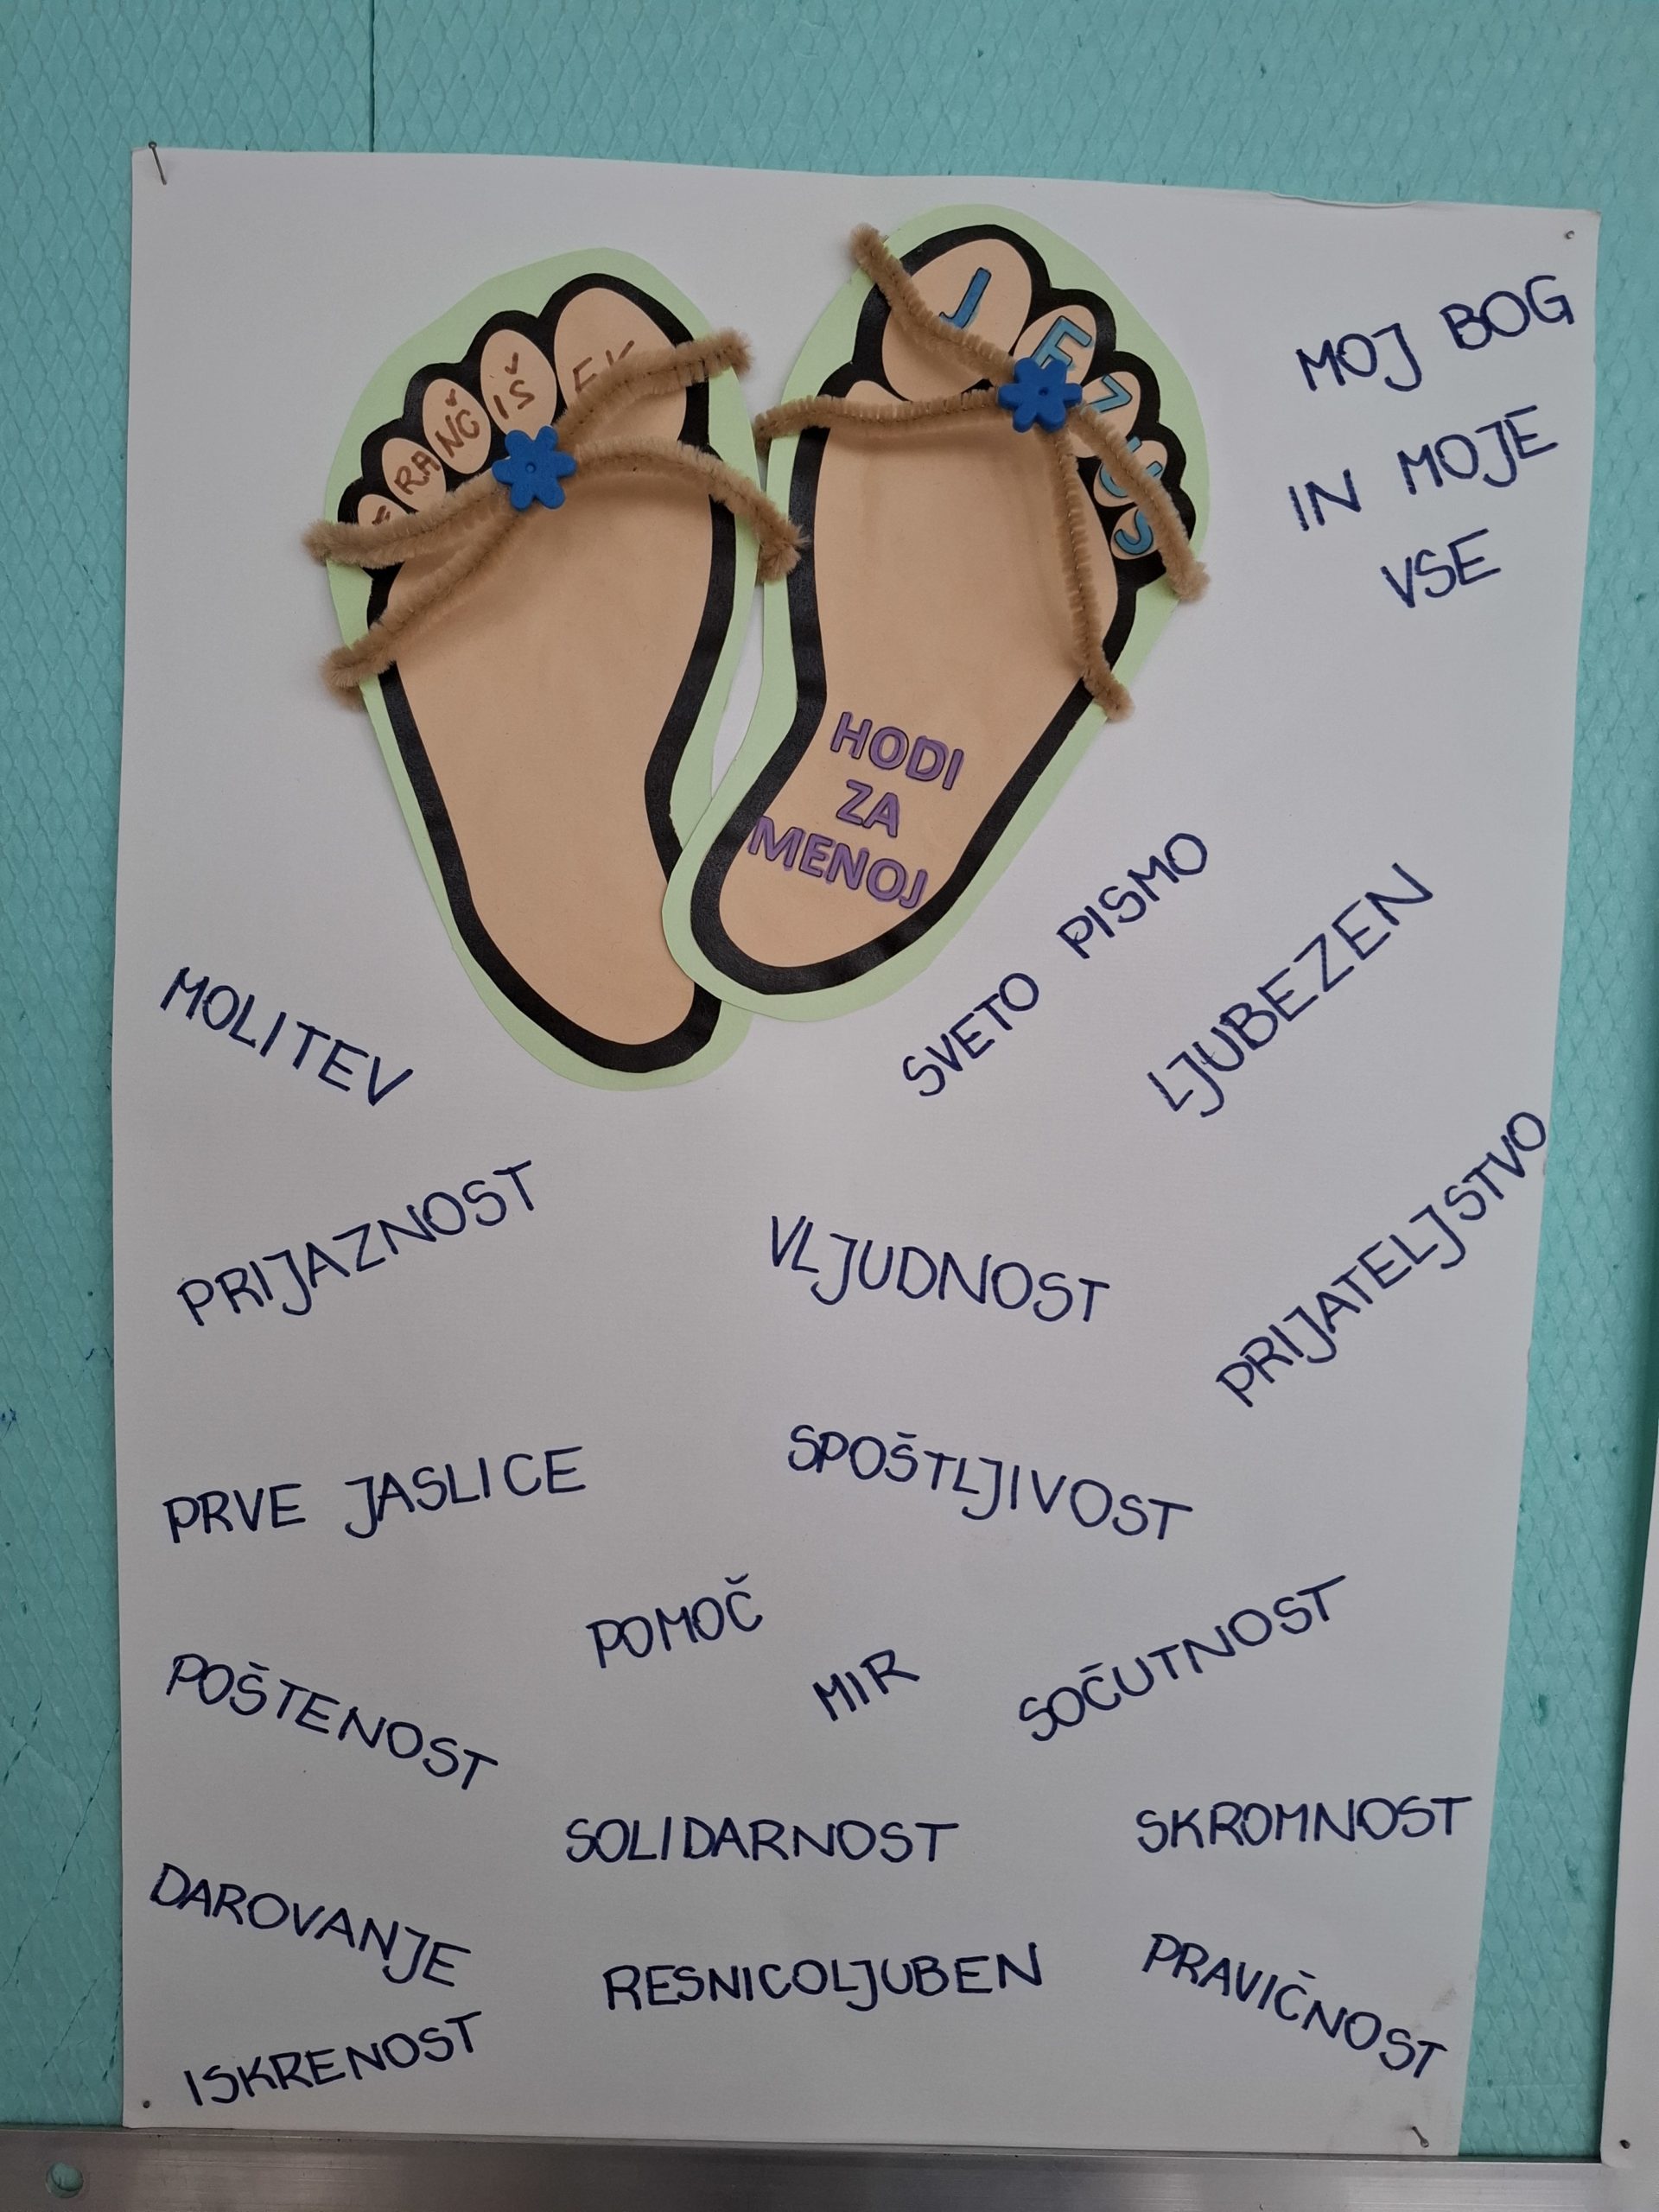 FRANČIŠEK
JEZUS
MOJ BOG
IN MOJE
VSE
HODI
ZA
MENOJ
MOLITEV
SVETO PISMO
LJUBEZEN
PRIJAZNOST
VLJUDNOST
PRIJATELJSTVO
PRVE JASLICE
SPOŠTLJIVOST
POMOČ
MIR
SOČUTNOST
POŠTENOST
SOLIDARNOST
SKROMNOST
DAROVANJE
RESNICOLJUBEN
PRAVIČNOST
ISKRENOST